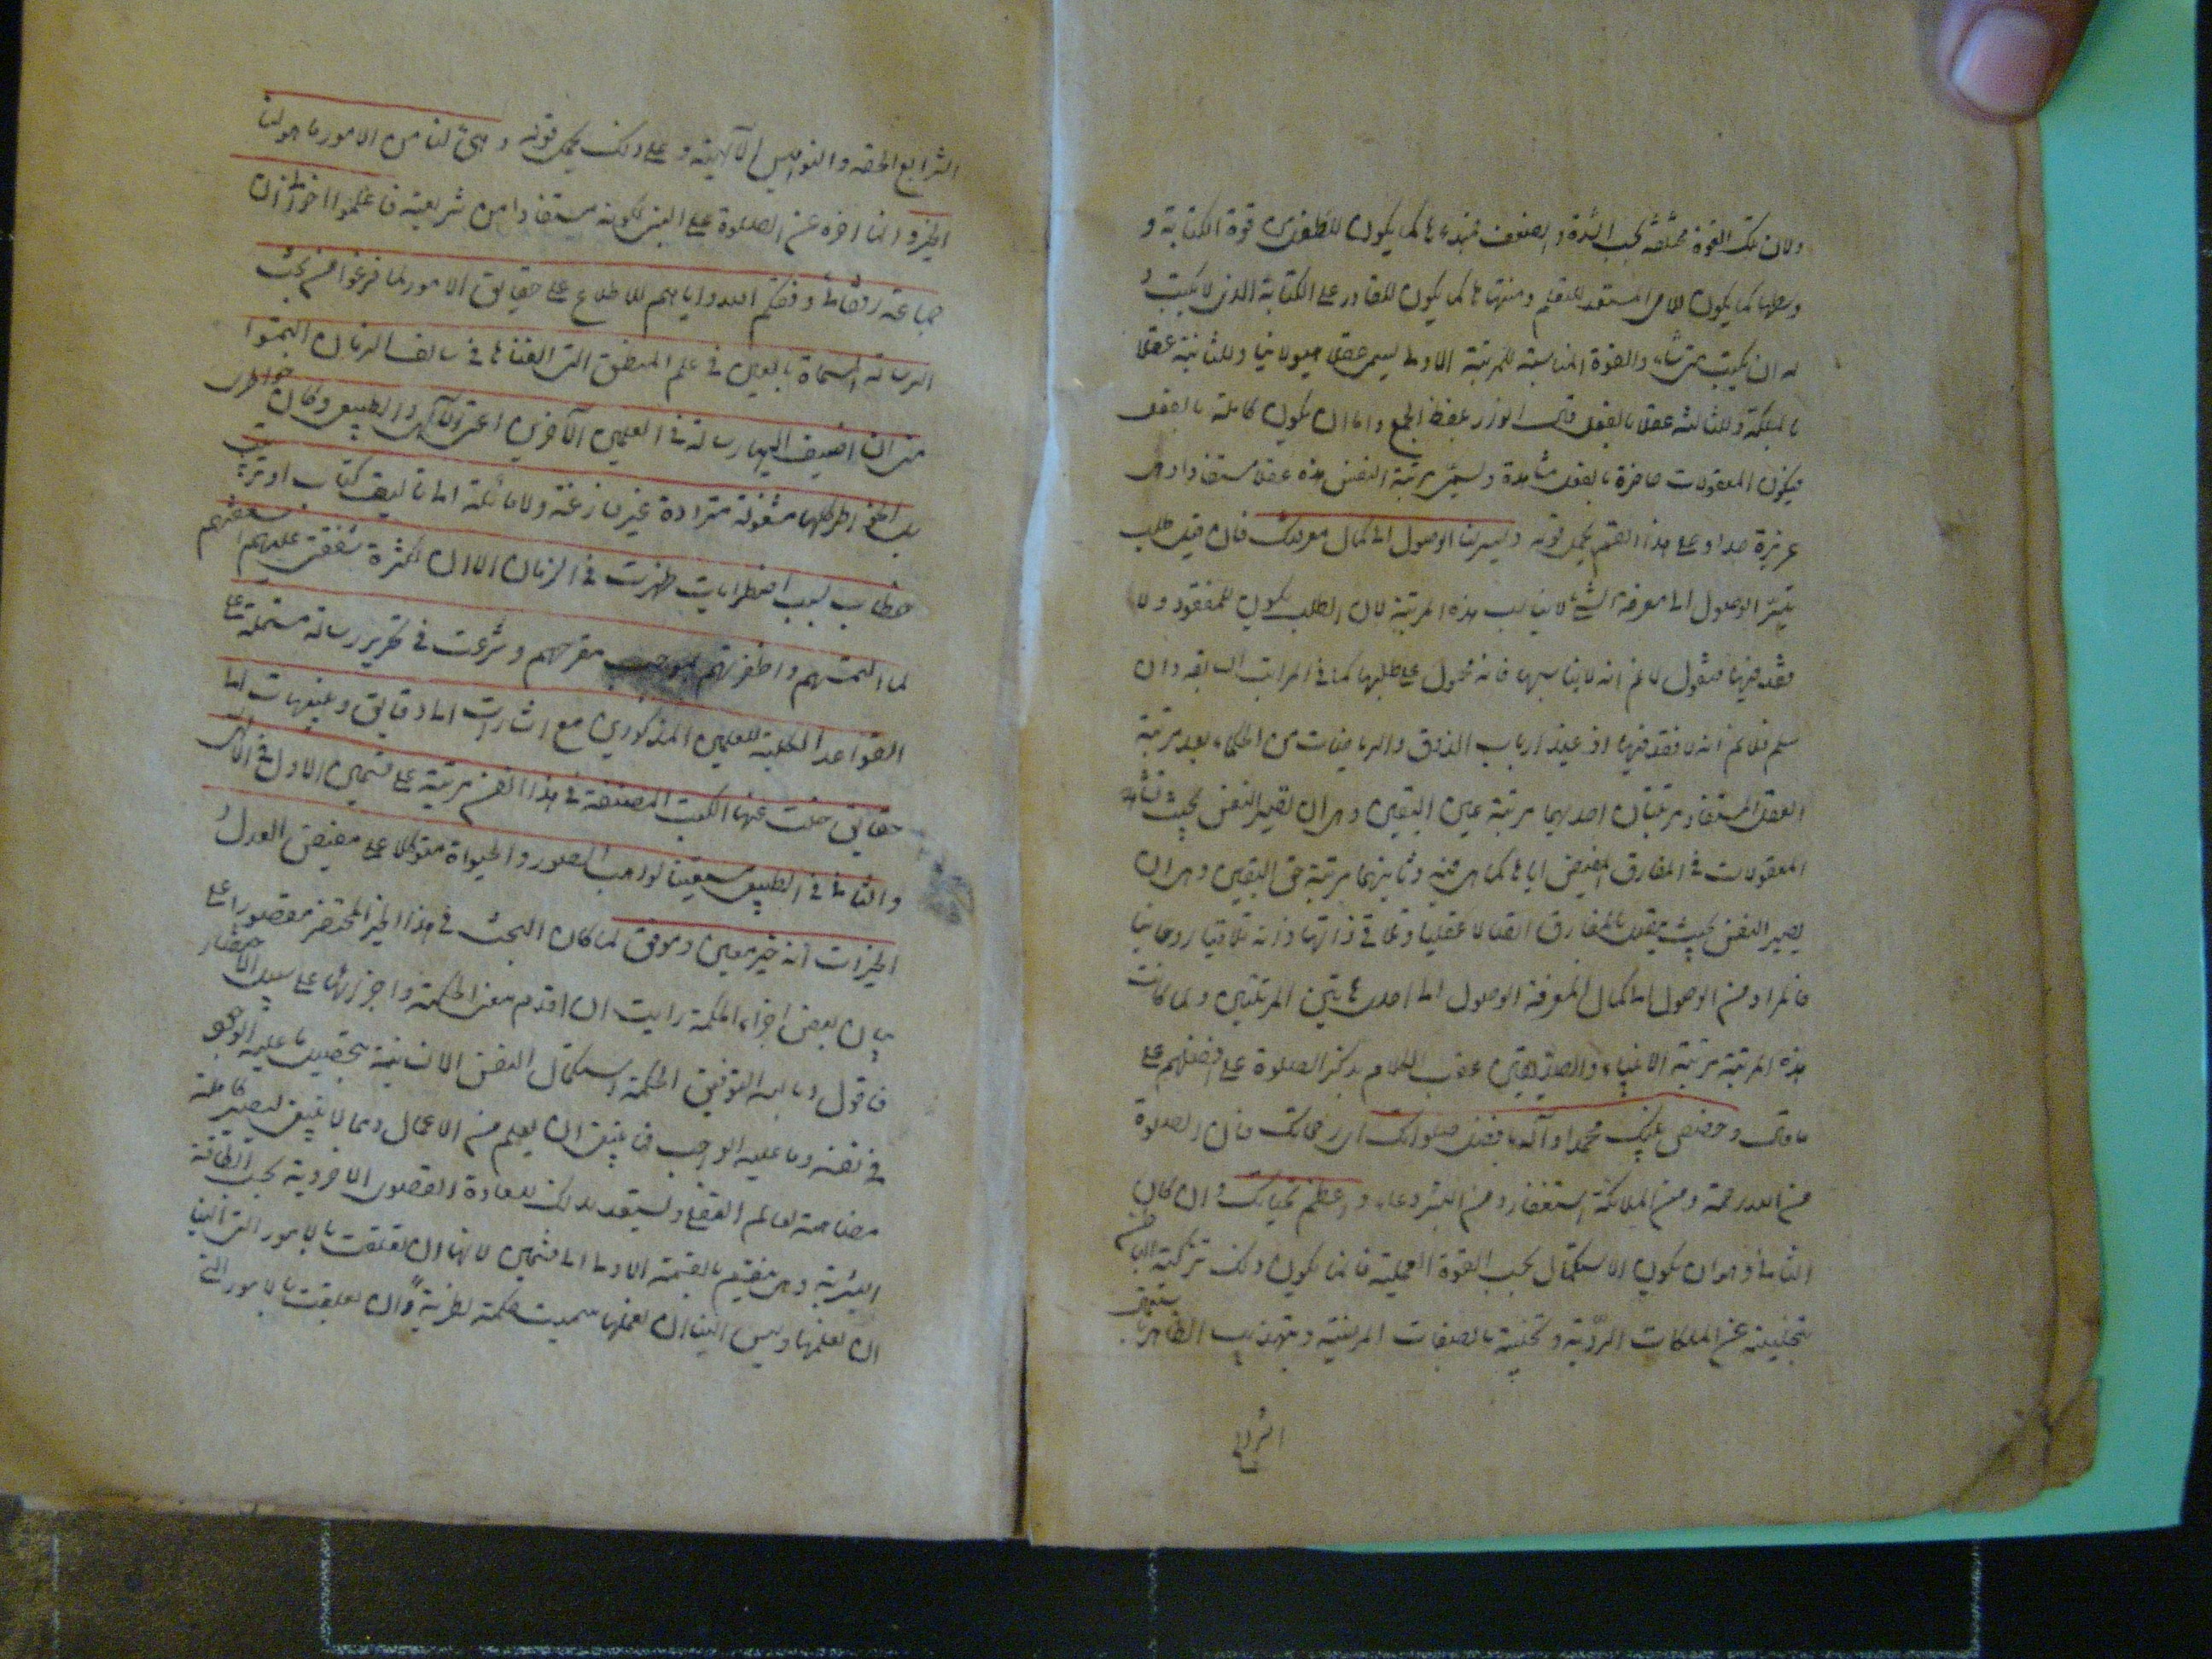 ولان تلك القوة مختلفة بحسب الشدة والضعف فمبدءها كما يكون للطفل من قوة الكتابة و
وسطها كما يكون للامى المستعد للتعلم ومنتهاها كما يكون للقادر على الكتابة الذى لا يكتب و
له ان يكتب متى شاء والقوة المناسبة للمرتبة الاولى يسمى عقلا هيولانيا وللثانية عقلا
بالملكة وللثالثة عقلا بالفعل واما ان يكون كاملة بالفعل
فيكون المعقولات حاضرة بالفعل مشاهدة ويسمى مرتبة النفس هذه عقلا مستفادا وهى
عزيزة جدا وعلى هذا القسم يحمل قوله ويسر لنا الوصول الى كمال معرفتك فان قيل طلب
تيسر الوصول الى معرفة الشىء لا يناسب هذه المرتبة لان الطلب يكون للمفقود ولا
فقد فيها فنقول لا نم انه لا يناسبها فانه محمول على طلبها كما فى المراتب السابقة وان
سلم فلا نم انه لا فقد فيها اذ عند ارباب الذوق والرياضات من الحكماء بعد مرتبة
العقل المستفاد مرتبتان احديهما مرتبة عين اليقين وهى ان تصير النفس بحيث تشاهد
المعقولات فى المفارق المفيض اياها كما هى فيه وثانيتهما مرتبة حق اليقين وهى ان
يصير النفس بحيث يتصل بالمفارق اتصالا عقليا وتلاقى ذاتها ذاته تلاقيا روحانيا
فالمراد من الوصول الى كمال المعرفة الوصول الى احدى هاتين المرتبتين ولما كانت
هذه المرتبة مرتبة الانبياء والصديقين عقب الكلام بذكر الصلوة على افضلهم على
ما قال وخصص نبيك محمدا وآله بافضل صلواتك اى رحماتك فان الصلوة
من الله رحمة ومن الملائكة استغفار ومن البشر دعاء واعظم تحياتك وان كان
الثانى وهو ان يكون الاستكمال بحسب القوة العملية فانما يكون ذلك بتزكية الباطن
بتخليته عن الملكات الردية وتحليته بالصفات المرضية وبتهذيب الظاهر باستعمال
الشرايع
الشرايع الحقه والنواميس الآلهية وعلى ذلك يحمل قوله وهيئ لنا من الامور ما هو لنا
الخير وانما اخره عن الصلوة على النبى لكونه مستفادا من شريعته فاعلموا اخوانى ان
جماعة رفقائى وفقكم الله واياهم للاطلاع على حقايق الامور لما فرغوا من بحث
الرسالة المسماة بالعين فى علم المنطق التى الفناها فى سالف الزمان التمسوا
منى ان اضيف اليها رسالة فى العلمين الآخرين اعنى الآلهى والطبيعى وكان خواطرى
بل الخواطر كلها مشغولة مترادة غير فارغة ولا مائلة الى تاليف كتاب او ترتيب
خطاب بسبب اضطرابات ظهرت فى الزمان الا ان لكثرة شفقتى عليهم اسعفتهم
لما التمسهم واظفرتهم بموجب مقترحهم وشرعت فى تحرير رسالة مشتملة على
القواعد الكلية للعلمين المذكورين مع اشارات الى دقايق وتنبيهات الى
حقايق خلت عنها الكتب المصنفة فى هذا الفن مرتبة على قسمين الاول فى الآلهى
والثانى فى الطبيعى مستعينا لواهب الصور والحيوة متوكلا على مفيض العدل و
الخيرات انه خير معين وموفق لما كان البحث فى هذا المختصر مقصورا على
بيان بعض اجزاء الحكمة رايت ان اقدم معنى الحكمة واجزائها على سبيل الاختصار
فاقول وبالله التوفيق الحكمة استكمال النفس الانسانية بتحصيل ما عليه الوجود
فى نفسه وما عليه الواجب فما ينبغى ان يعلم من الاعمال ومما لا ينبغى ليصير كاملة
مضاهية لعالم العقلى وتستعد بذلك للسعادة القصوى الاخروية بحسب الطاقة
البشرية وهى ينقسم بالقسمة الاولى الى قسمين لانها ان تعلقت بالامور التى الينا
ان نعلمها وليس الينا ان نفعلها سميت حكمة نظرية وان تعلقت بالامور التى